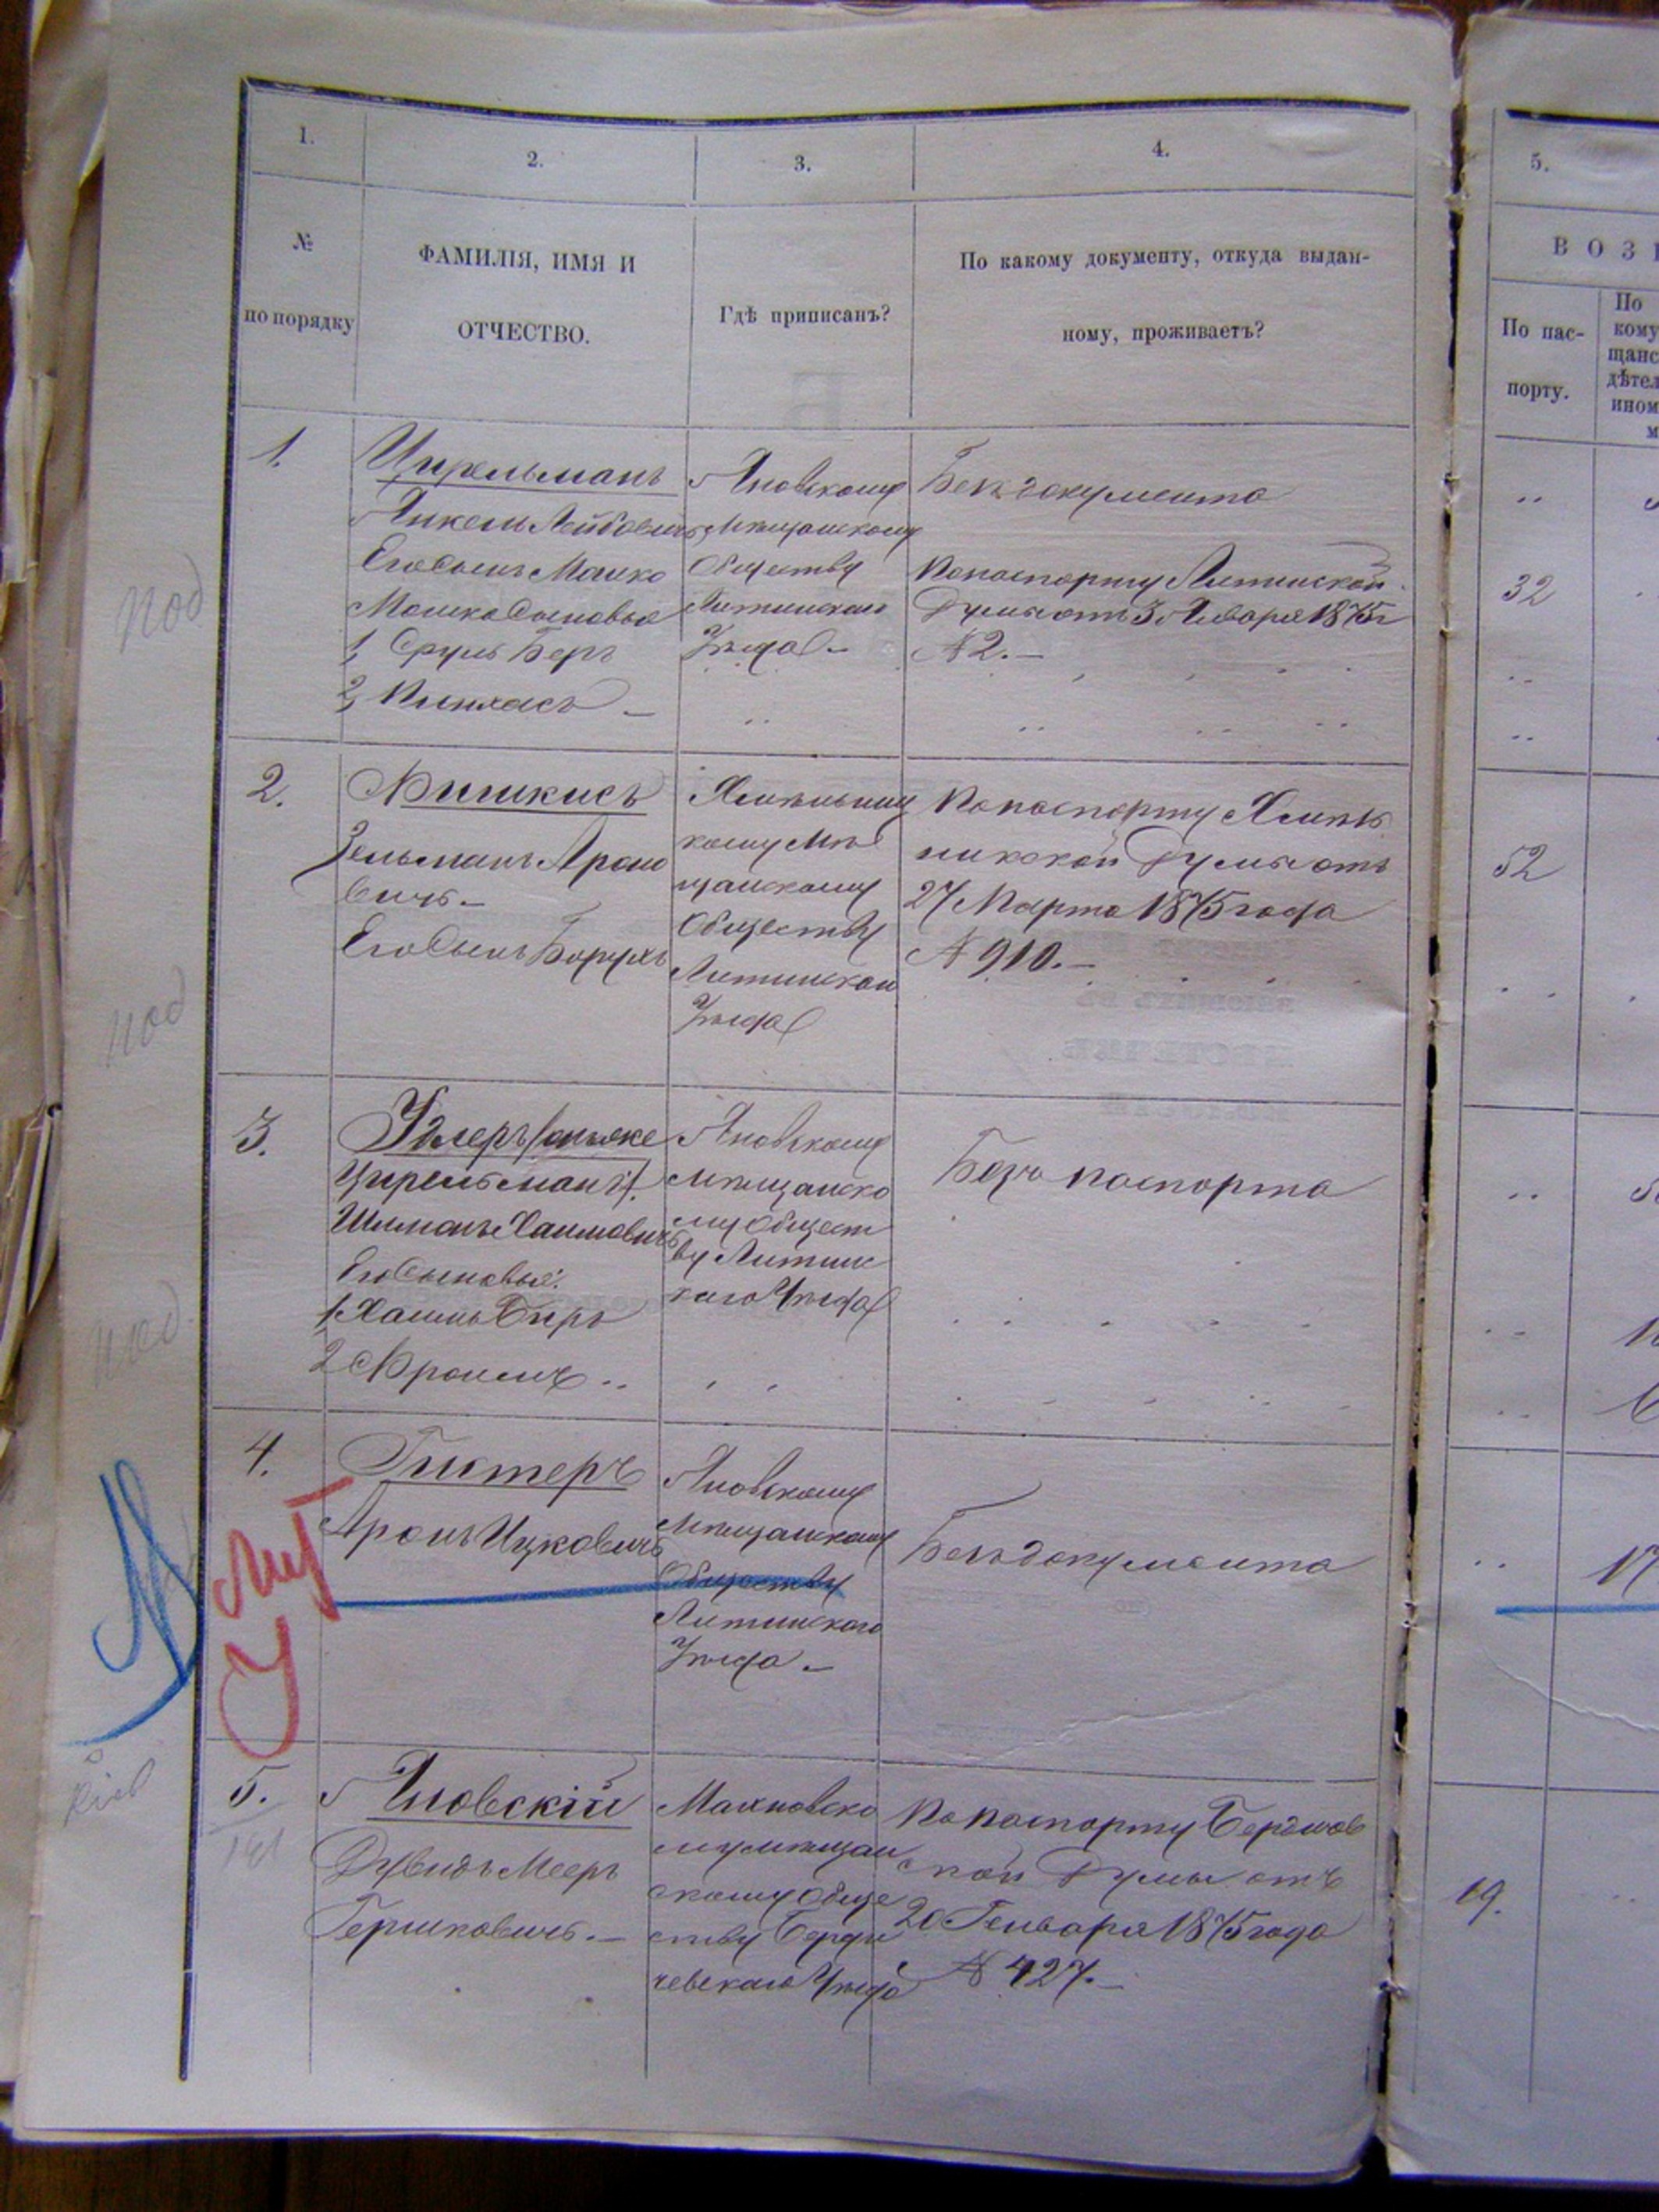 1.
2.
3.
4.
5.
№
по порядку
ФАМИЛІЯ, ИМЯ И
ОТЧЕСТВО.
Гдѣ приписанъ?
По какому документу, откуда выдан-
ному, проживаетъ?
По пас-
порту.
По
кому
щанс
дѣтел
ином
м
1.
Цирельманъ
Янкель Лейбовичъ
Его Сынъ Мошко
Мошка Сыновья
1, Сруль Беръ
2, Пинхасъ
Яновскому
Мѣщанскому
Обществу
Литинскаго
Уѣзда
Безъ документа
По паспорту Литинской
Думы отъ 3 Января 1875 г
№ 2.
32
2.
ЗельманъАроно
вичъ
Его Сынъ Борухъ
Хмѣльниц
кому Мѣ
щанскому
Обществу
Литинскаго
Уѣзда
По паспорту Хмѣль
никской Думы отъ
27 Марта 1875 года
№ 910.
52
3.
Удлеръ (онъ же
Цирельманъ).
Шимонъ Хаимовичъ
Его Сыновья:
1, Хаимъ Беръ
2 Фроимъ
Яновскому
Мѣщанско
му Общест
ву Литинс
каго Уѣзда
Безъ паспорта
4.
Гистеръ
Аронъ Ицковичъ
Яновскому
Мѣщанскому
Обществу
Литинскаго
Уѣзда
Безъ документа
17
5.
Яновскій
Дувидъ Мееръ
Гершковичъ.
Махновско
му мѣщан
скому обще
ству Берди
чевскаго Уѣзда
По паспорту Бердичев
ской Думы отъ
20 Генваря 1875 года
№ 427.
19.